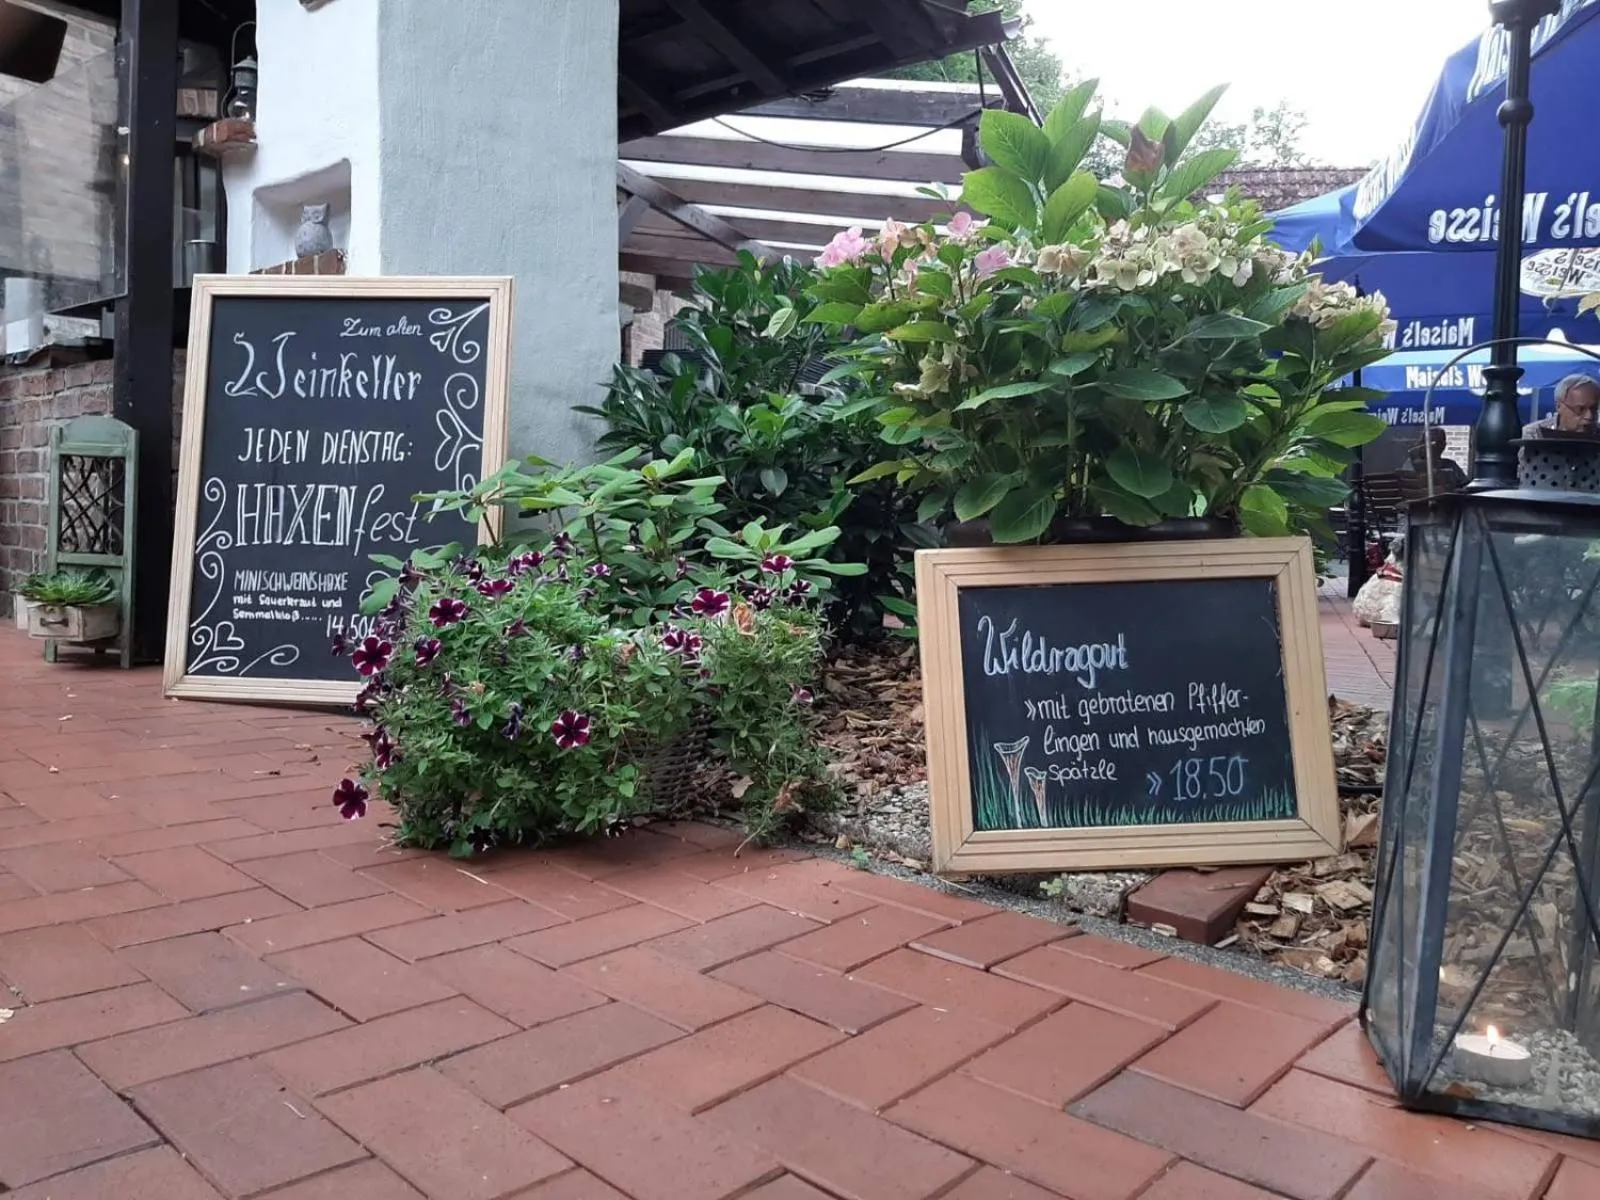 Zum alten
Weinkeller
JEDEN DIENSTAG:
HAXENfest
MINISCHWEINSHAXE
mit Sauerkraut und
Semmelkloß.....
14,50€
Wildragout
»mit gebratenen Pfiffer-
lingen und hausgemachten
Spätzle
» 18,50
Weisse
Maisel's
Maisel's We